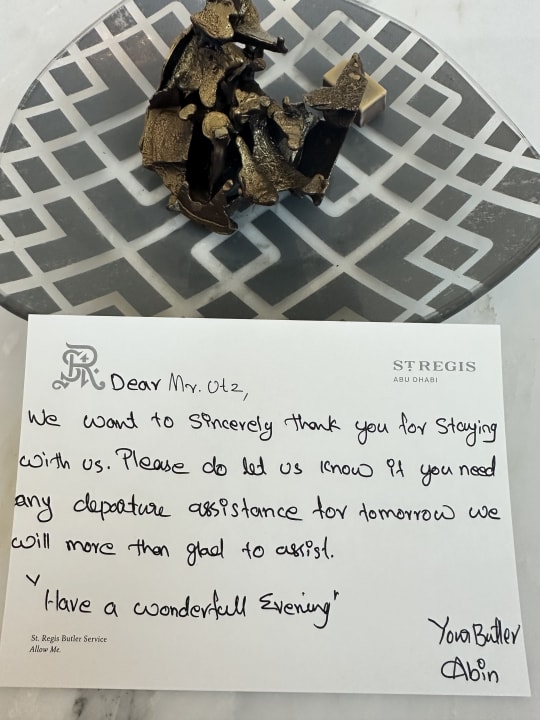 SR
ST REGIS
ABU DHABI
Dear Mr. Utz,
We want to Sincerely thank you for staying
with us. Please do let us know if you need
any depature assistance for tomorrow we
will more than glad to assist.
"Have a wonderfull Evening"
Your Butler
Abin
St. Regis Butler Service
Allow Me.